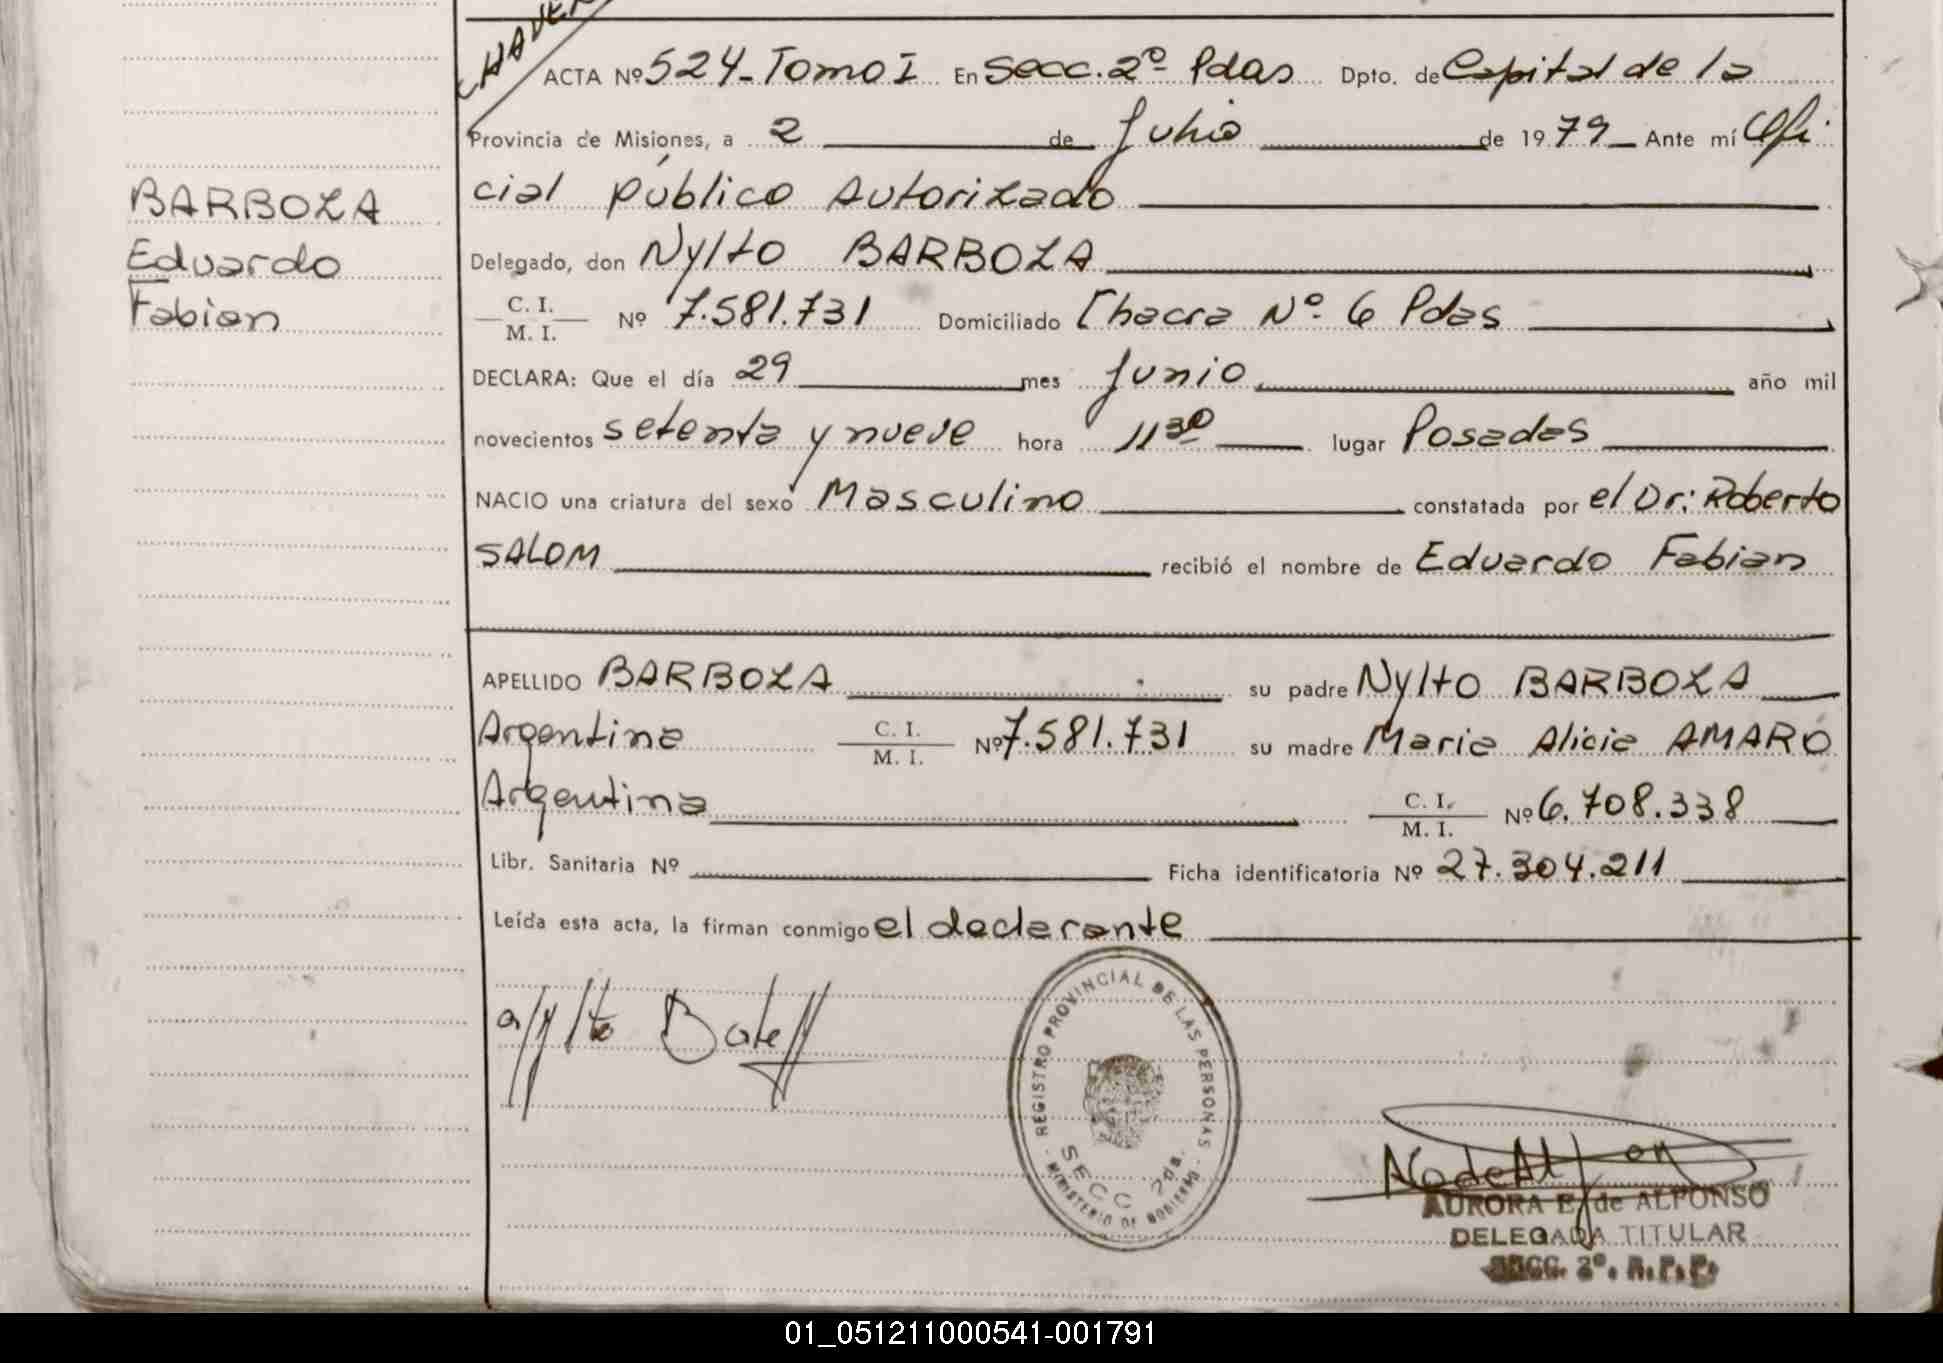 CHAVER
ACTA Nº 524 - Tomo I En Secc. 2º Pdas Dpto. de Capital de la
Provincia de Misiones, a 2 de Julio de 1979 Ante mí Ofi
cial público Autorizado
Delegado, don Nylto BARBOZA
C. I. / M. I. Nº 7.581.731 Domiciliado Chacra Nº 6 Pdas
DECLARA: Que el día 29 mes Junio año mil
novecientos setenta y nueve hora 11 30 lugar Posadas
NACIO una criatura del sexo Masculino constatada por el Dr: Roberto
SALOM recibió el nombre de Eduardo Fabian
APELLIDO BARBOZA su padre Nylto BARBOZA
Argentina C. I. / M. I. Nº 7.581.731 su madre Maria Alicia AMARO
Argentina C. I. / M. I. Nº 6.708.338
Libr. Sanitaria Nº Ficha identificatoria Nº 27.304.211
Leída esta acta, la firman conmigo el declarante
BARBOZA
Eduardo
Fabian
REGISTRO PROVINCIAL DE LAS PERSONAS
SECC 2da.
MINISTERIO DE GOBIERNO
AURORA E. de ALFONSO
DELEGADA TITULAR
SECC. 2º. R.P.P.
01_051211000541-001791